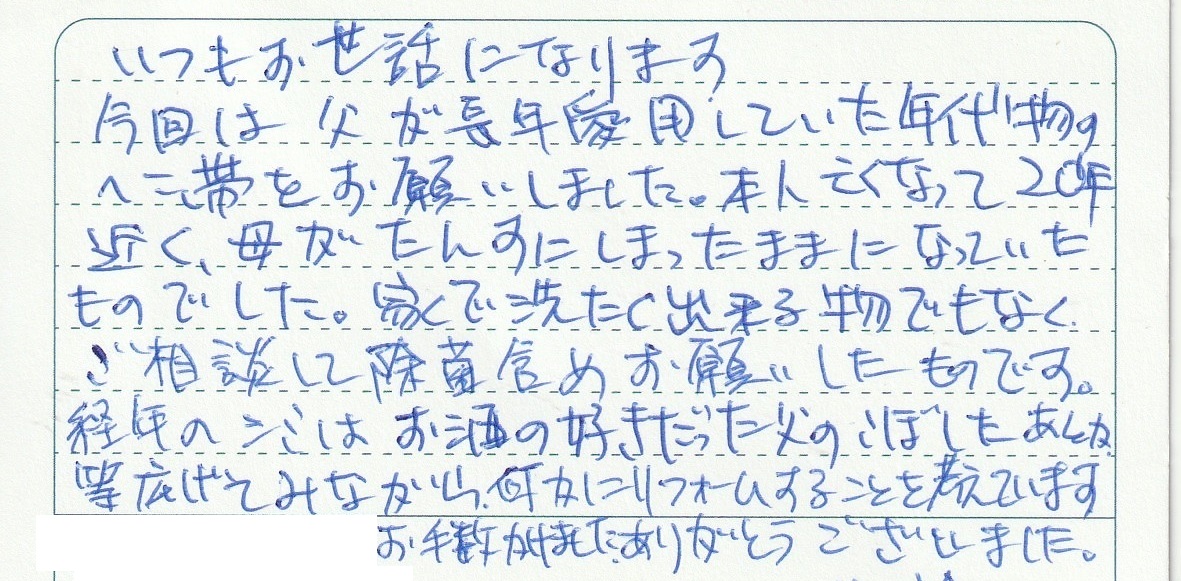 いつもお世話になります
今回は父が長年愛用していた年代物の
へこ帯をお願いしました。本人亡くなって20年
近く、母がたんすにしまったままになっていた
ものでした。家で洗たく出来る物でもなく
ご相談して除菌含めお願いしたものです。
経年のシミはお酒の好きだった父のこぼしたあとか
等広げてみながら、何かにリフォームすることを考えています
お手数かけましたありがとうございました。